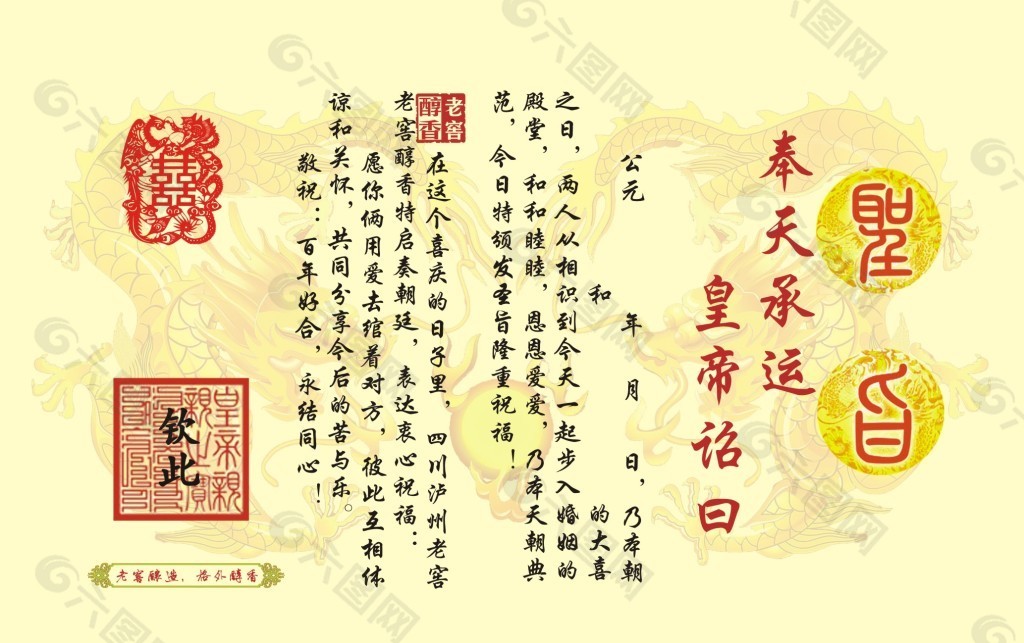 聖
旨
奉天承运
皇帝诏曰
公元 年 月 日,乃本朝
和 的大喜
之日,两人从相识到今天一起步入婚姻的
殿堂,和和睦睦,恩恩爱爱,乃本天朝典
范,今日特颁发圣旨隆重祝福!
老窖
醇香
在这个喜庆的日子里,四川泸州老窖
老窖醇香特启奏朝廷,表达衷心祝福:
愿你俩用爱去绾着对方,彼此互相体
谅和关怀,共同分享今后的苦与乐。
敬祝:百年好合,永结同心!
囍
钦此
老窖酿造,格外醇香
六图网